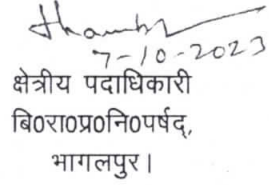 7-10-2023
क्षेत्रीय पदाधिकारी
बि0रा0प्र0नि0पर्षद्,
भागलपुर।